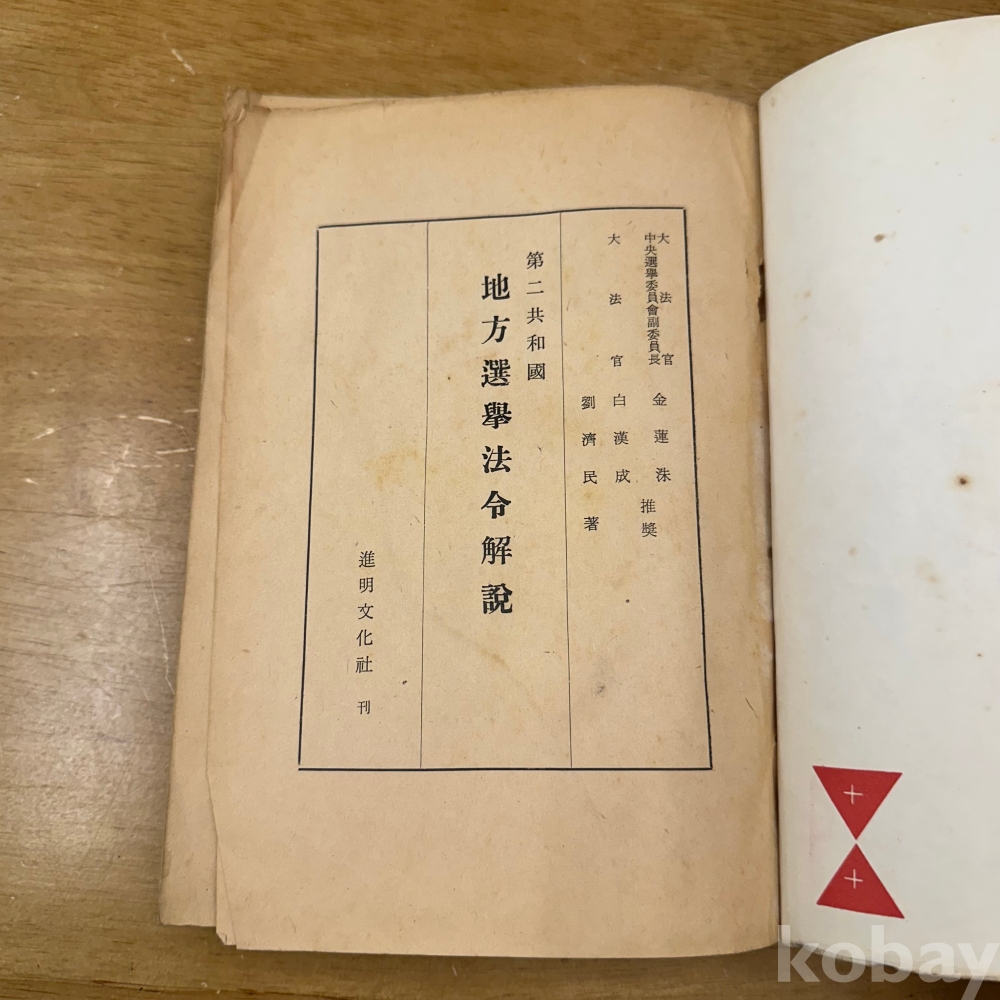 大法官
中央選擧委員會副委員長
金蓮洙
大法官 白漢成
推奬
劉濟民 著
第二共和國
地方選擧法令解說
進明文化社 刊
kobay